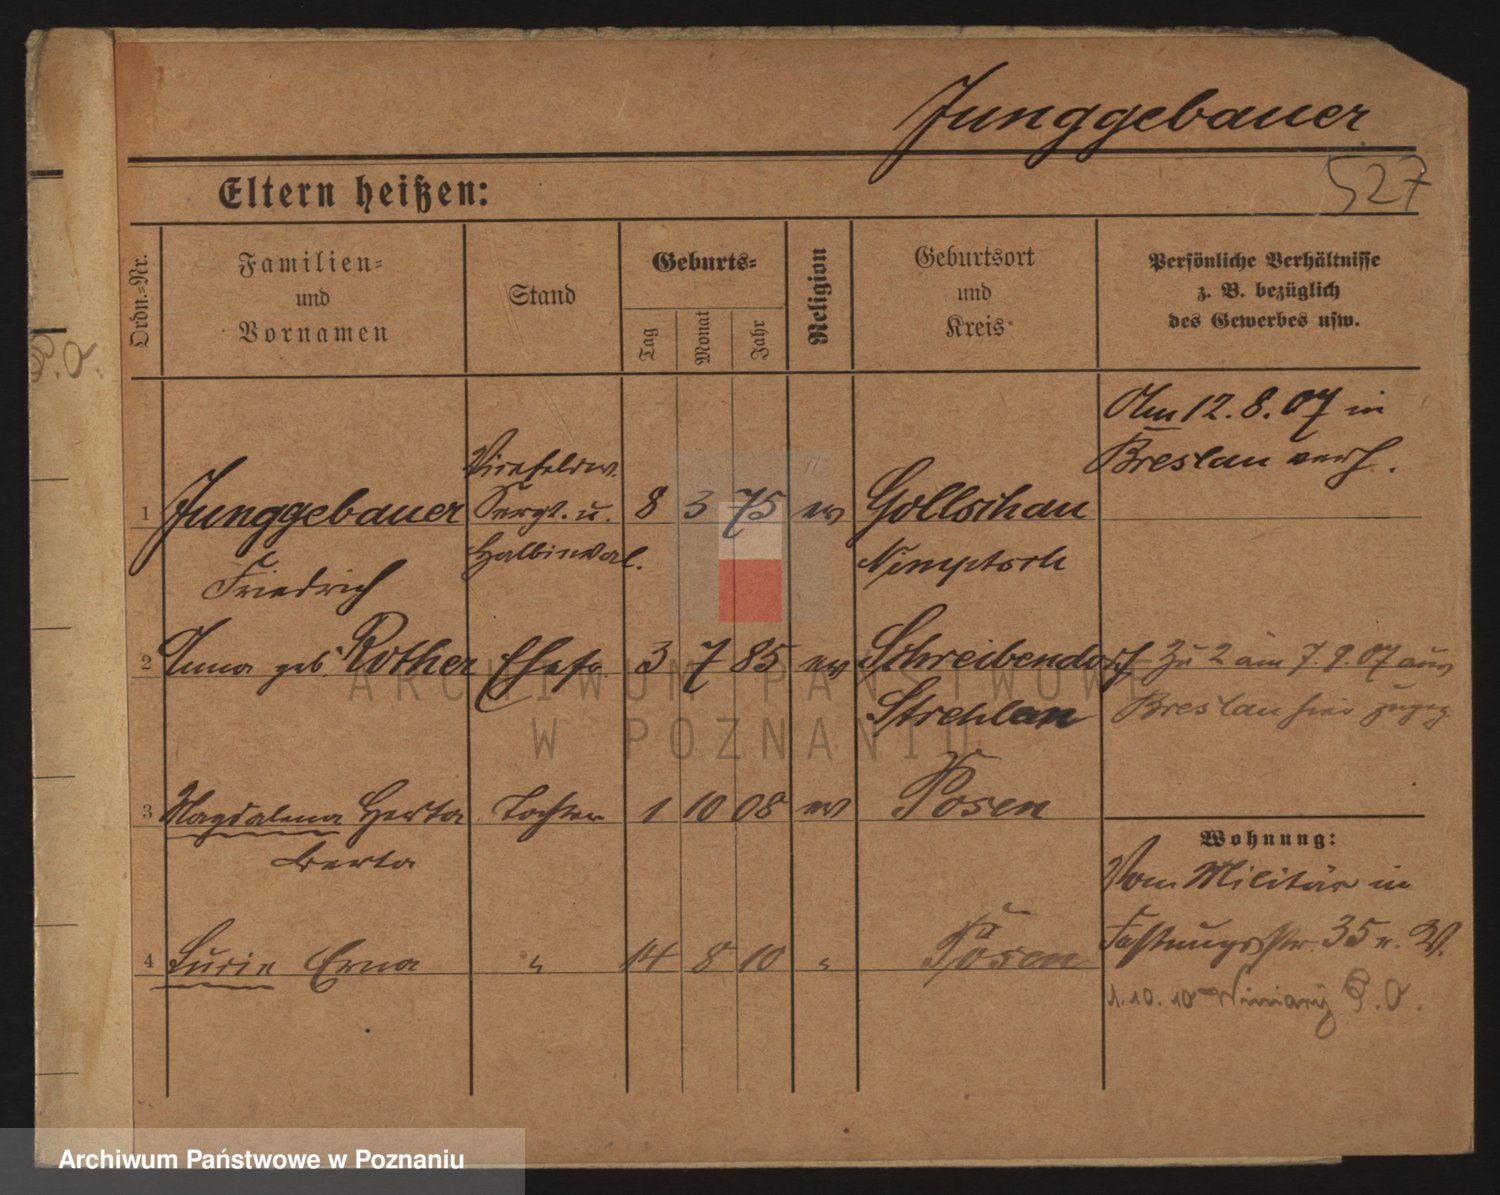 Junggebauer
527
Eltern heißen:
Ordn.-Nr.
Familien=
und
Vornamen
Stand
Geburts=
Tag
Monat
Jahr
Religion
Geburtsort
und
Kreis
Persönliche Verhältnisse
z. B. bezüglich
des Gewerbes usw.
P.O.
Am 12.8.07 in
Breslau verh.
Vizefeldw.
1 Junggebauer Sergt. u. 8 3 75 ev Gollschau
Halbinval. Nimptsch
Friedrich
2 Anna geb. Rother Ehefr 3 7 85 ev Schreibendorf Zu 2 am 7.9.07 aus
Strehlen Breslau hier zugez.
3 Magdalena Herta Tochter 1 10 08 ev Posen
Berta
Wohnung:
Vom Militär in
4 Erna " 14 8 10 " Posen Festungsstr. 35 n. W.
1.10.10 Winiary P.O.
ARCHIWUM PAŃSTWOWE
W POZNANIU
Archiwum Państwowe w Poznaniu